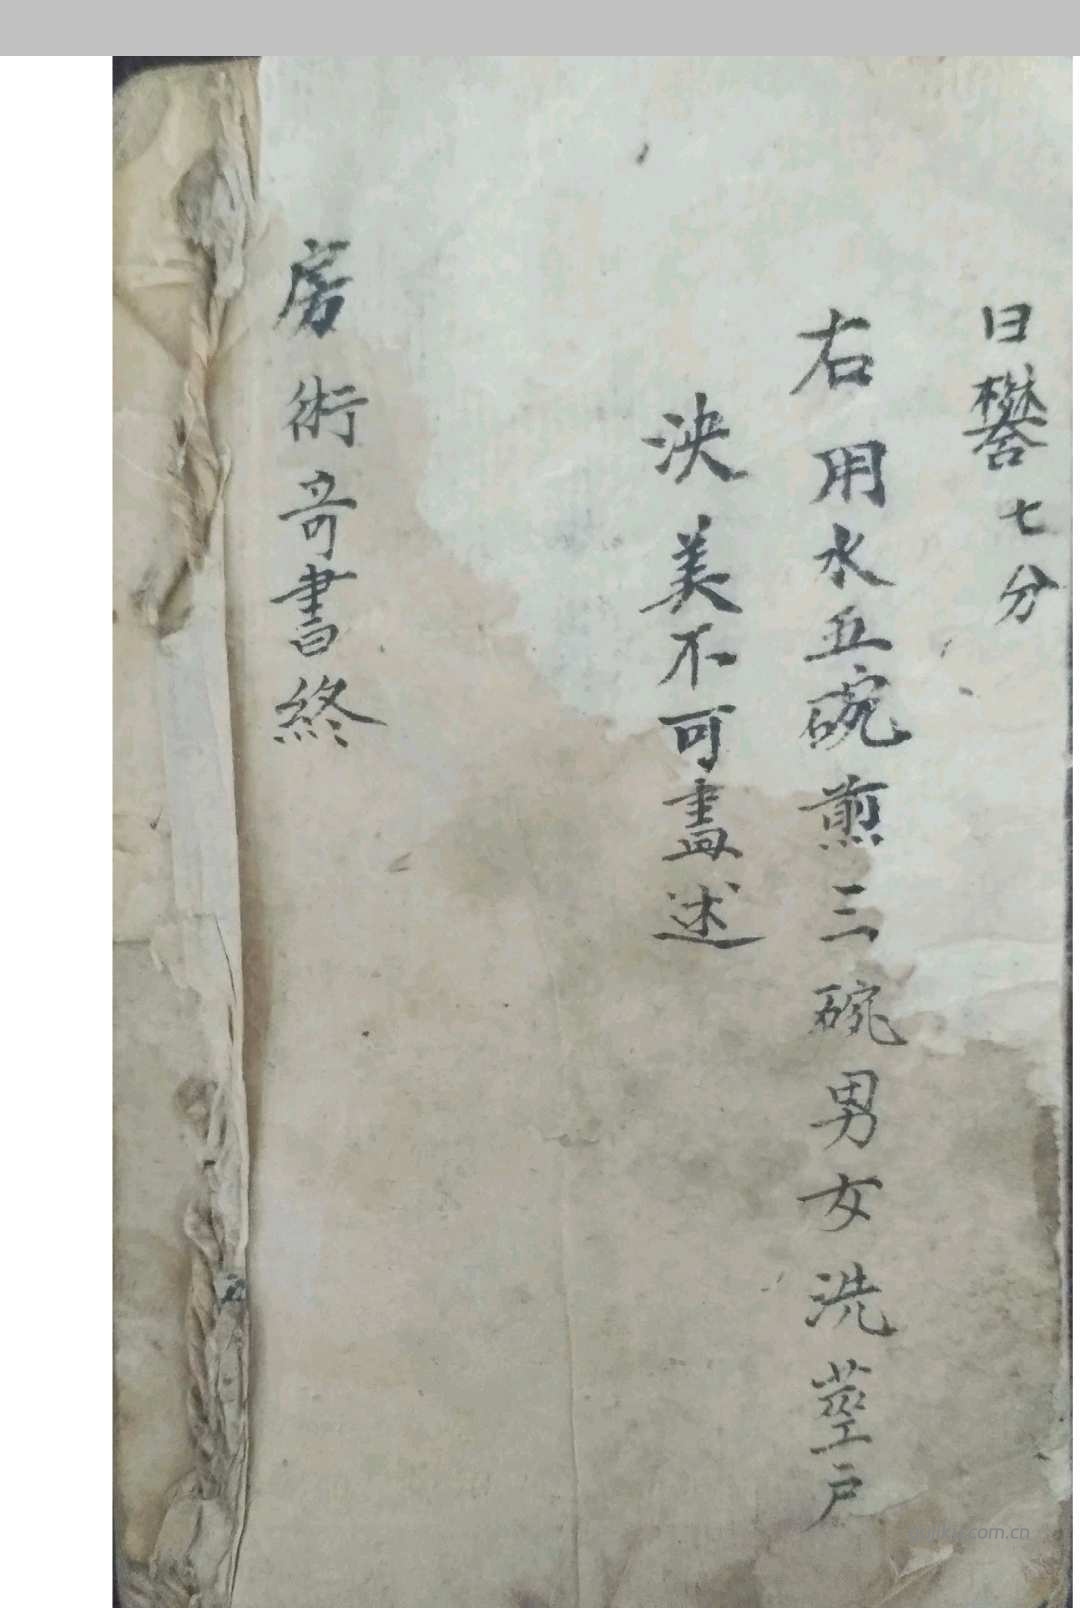 曰礬七分
右用水五碗煎三碗男女洗莖戶
泱美不可盡述
房術奇書終
.com.cn